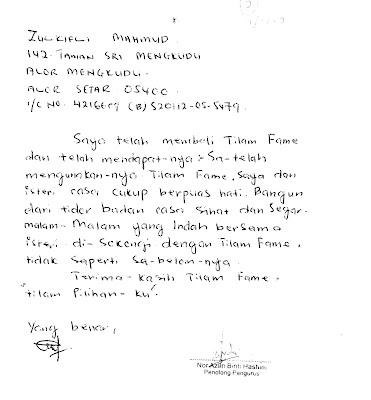 ZULKIFLI MAHMUD.
142. TAMAN SRI MENGKUDU
ALOR MENGKUDU.
ALOR SETAR 05400.
I/C NO. 4216607 (B) 520112-05-5479.
Saya telah membeli Tilam Fame
dan telah mendapat-nya :- Sa-telah
mengunakan-nya Tilam Fame. Saya dan
isteri rasa cukup berpuas hati. Bangun
dari tidor badan rasa sihat dan Segar.
malam-Malam yang Indah bersama
isteri di- Sekongi dengan Tilam Fame.
tidak Saperti Sa-belom-nya.
Terima-kasih Tilam Fame.
tilam Pilihan-ku.
Yang benar,
Nor Azlin Binti Hashim
Penolong Pengurus